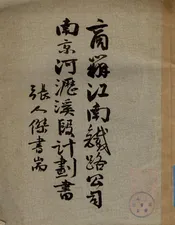 商辦江南鐵路公司
南京河瀝溪段計劃書
張人傑書耑